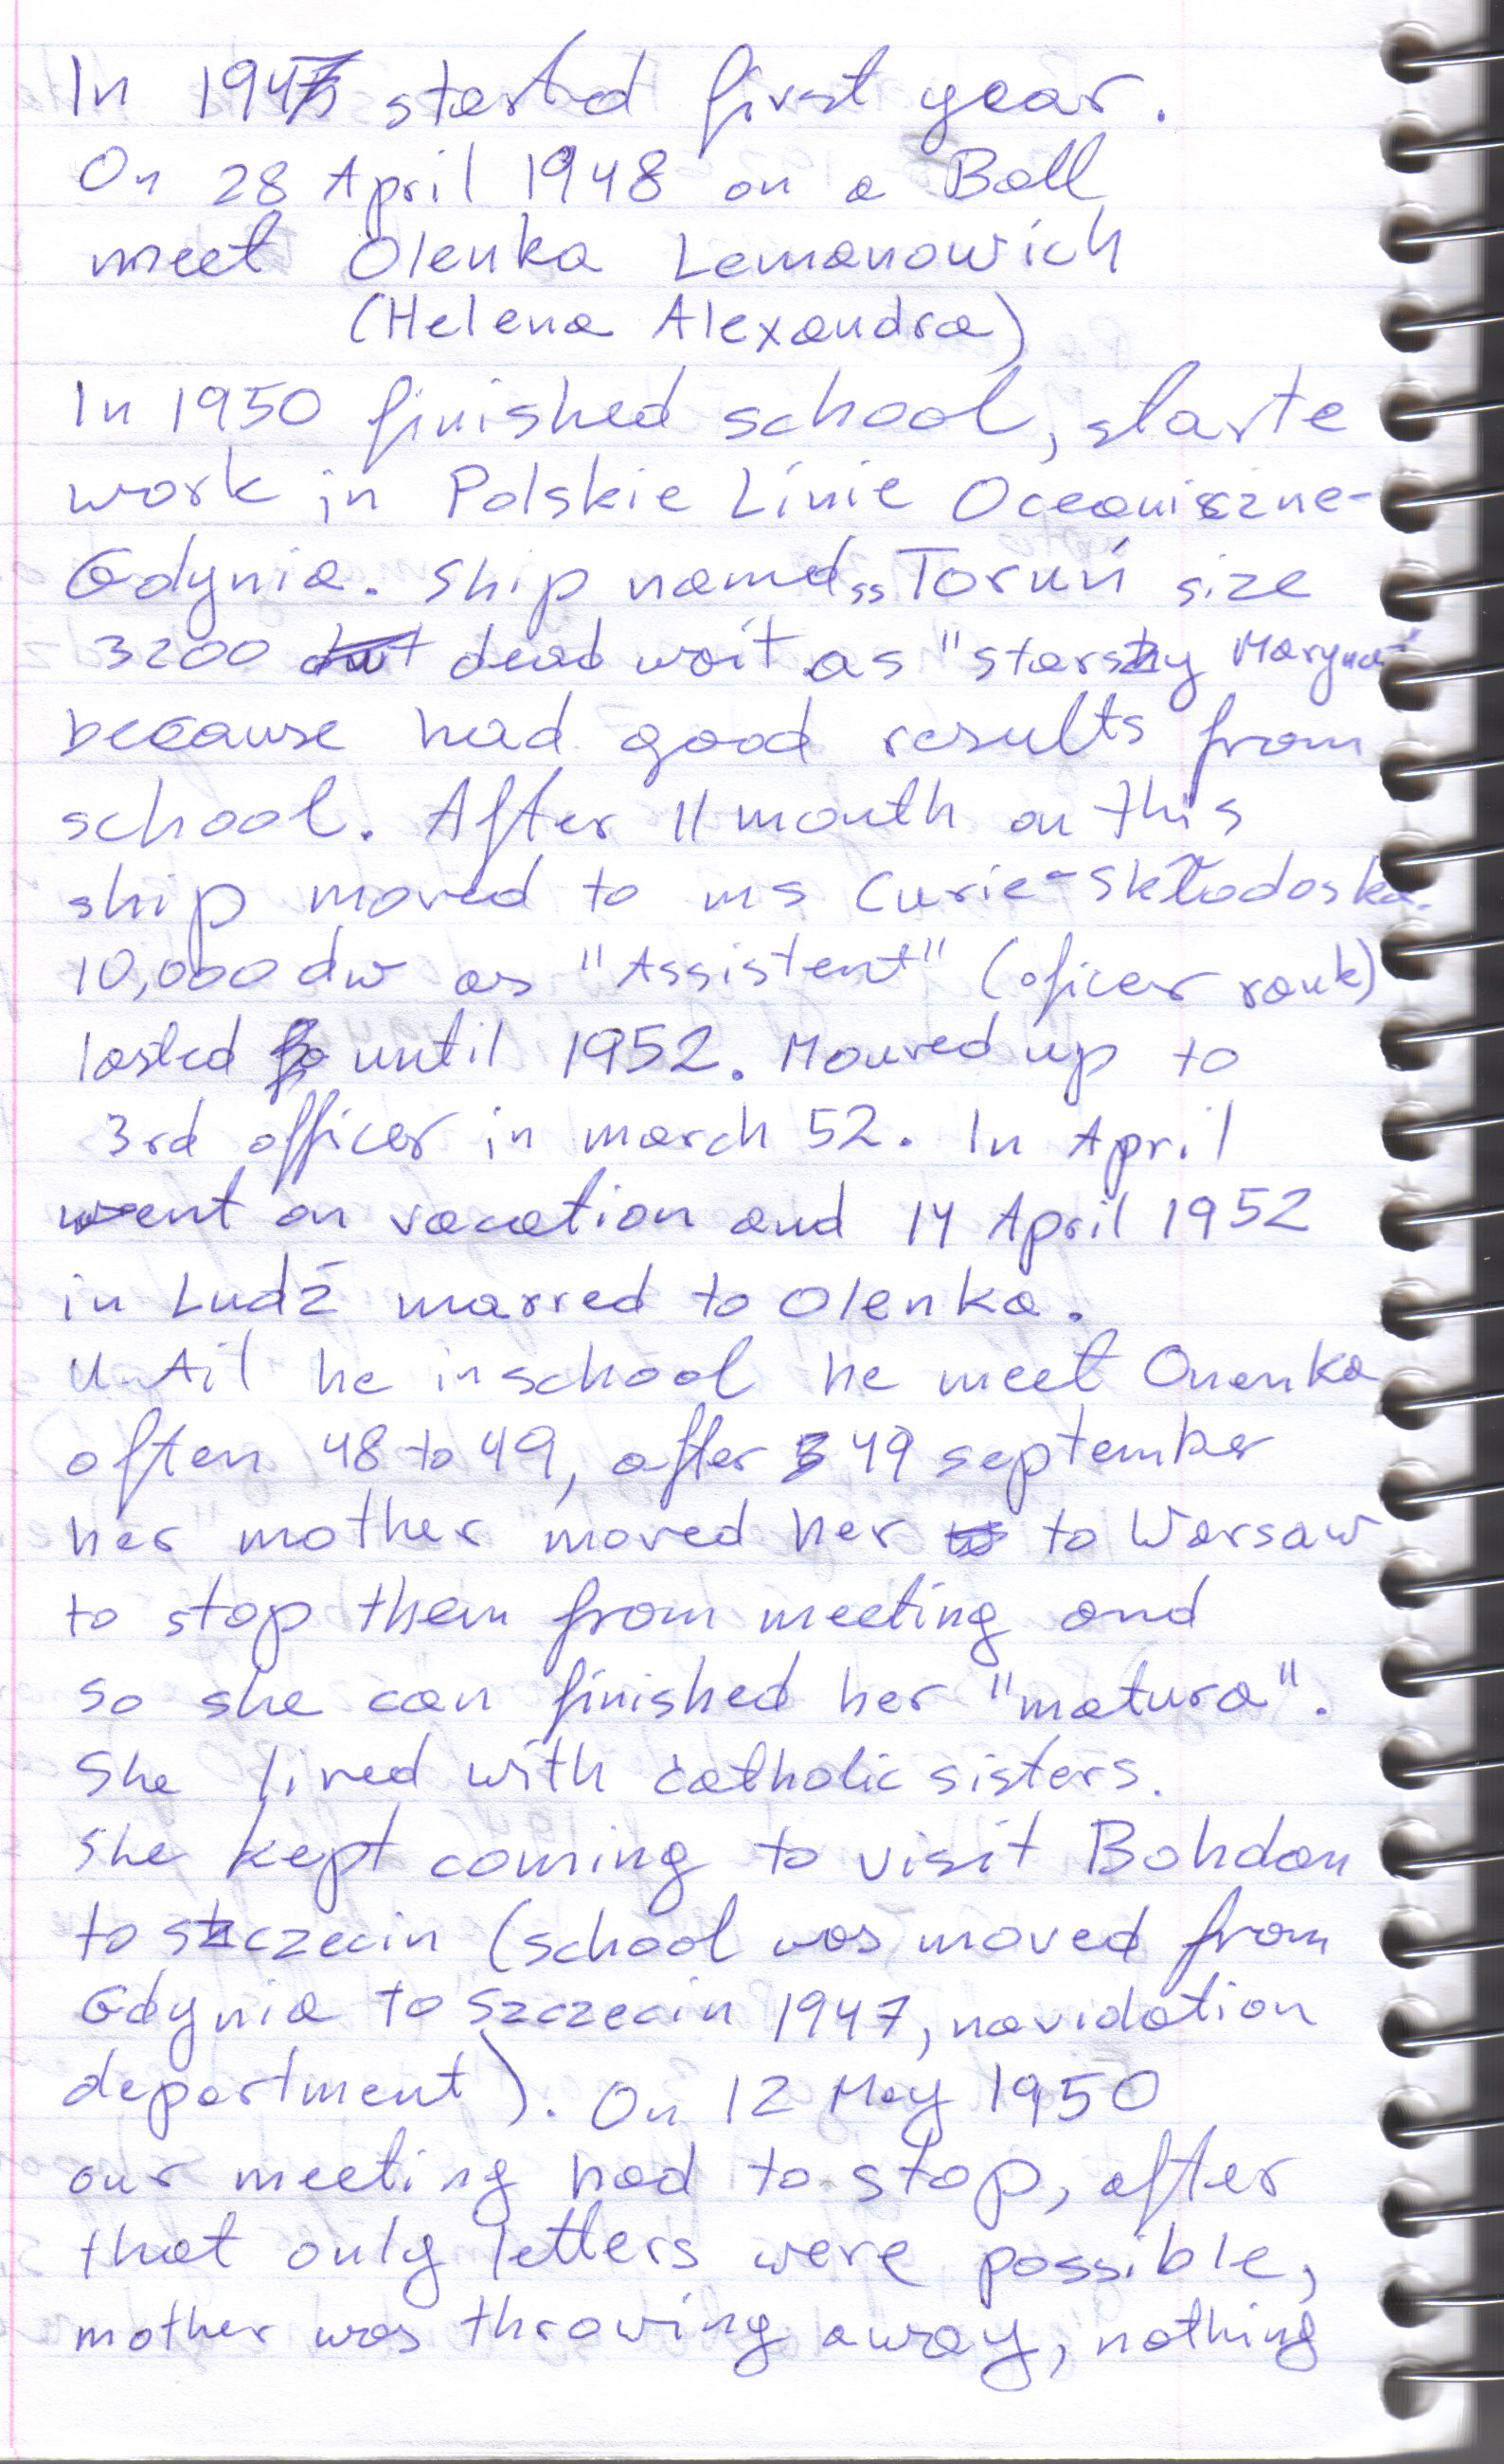 In 1947 started first year.
On 28 April 1948 on a Ball
meet Olenka Lemanowich
(Helena Alexandra)
In 1950 finished school, starte
work in Polskie Linie Oceaniczne-
Gdynia. Ship named „Toruń size
3200 dwt dead wait as "starszy Maryna"
because had good results from
school. After 11 month on this
ship moved to ms Curie-Skłodoska.
10,000 dw as "Assistent" (oficer rank)
lasted fo until 1952. Mouved up to
3rd officer in march 52. In April
went on vacation and 14 April 1952
in Ludź marred to Olenka.
Until he in school he meet Onenka
often 48 to 49, after 49 september
her mother moved her to to Warsaw
to stop them from meeting and
so she can finished her "matura".
She lived with catholic sisters.
She kept coming to visit Bohdan
to Szczecin (school was moved from
Gdynia to Szczecin 1947, navidation
department). On 12 May 1950
our meeting had to stop, after
that only letters were possible,
mother was throwing away, nothing